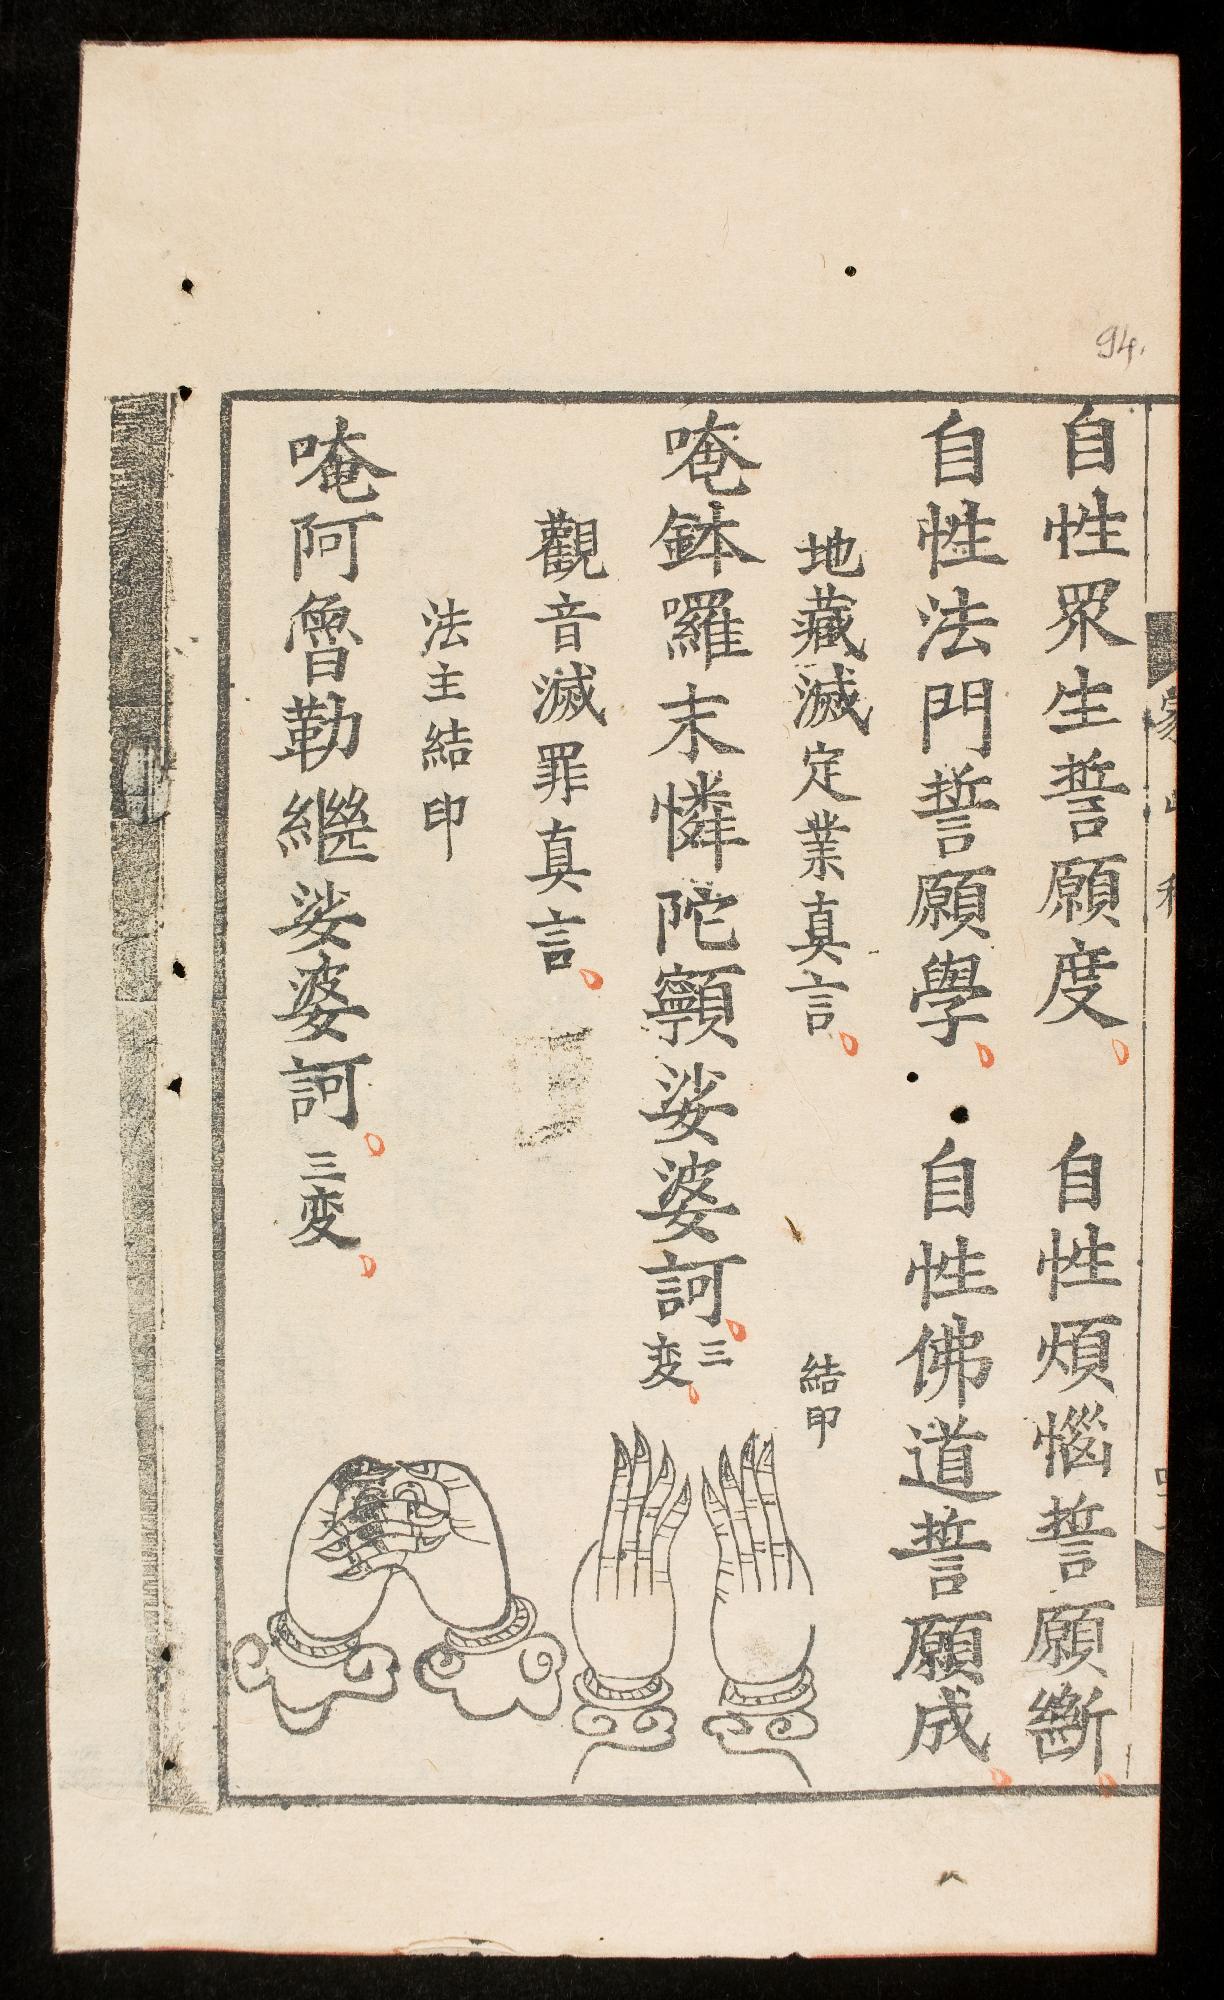 94.
自性眾生誓願度 自性煩惱誓願斷
自性法門誓願學 自性佛道誓願成
地藏滅定業真言 結印
唵鉢囉末憐陀顙娑婆訶 三変
觀音滅罪真言
法主結印
唵阿魯勒繼娑婆訶 三変